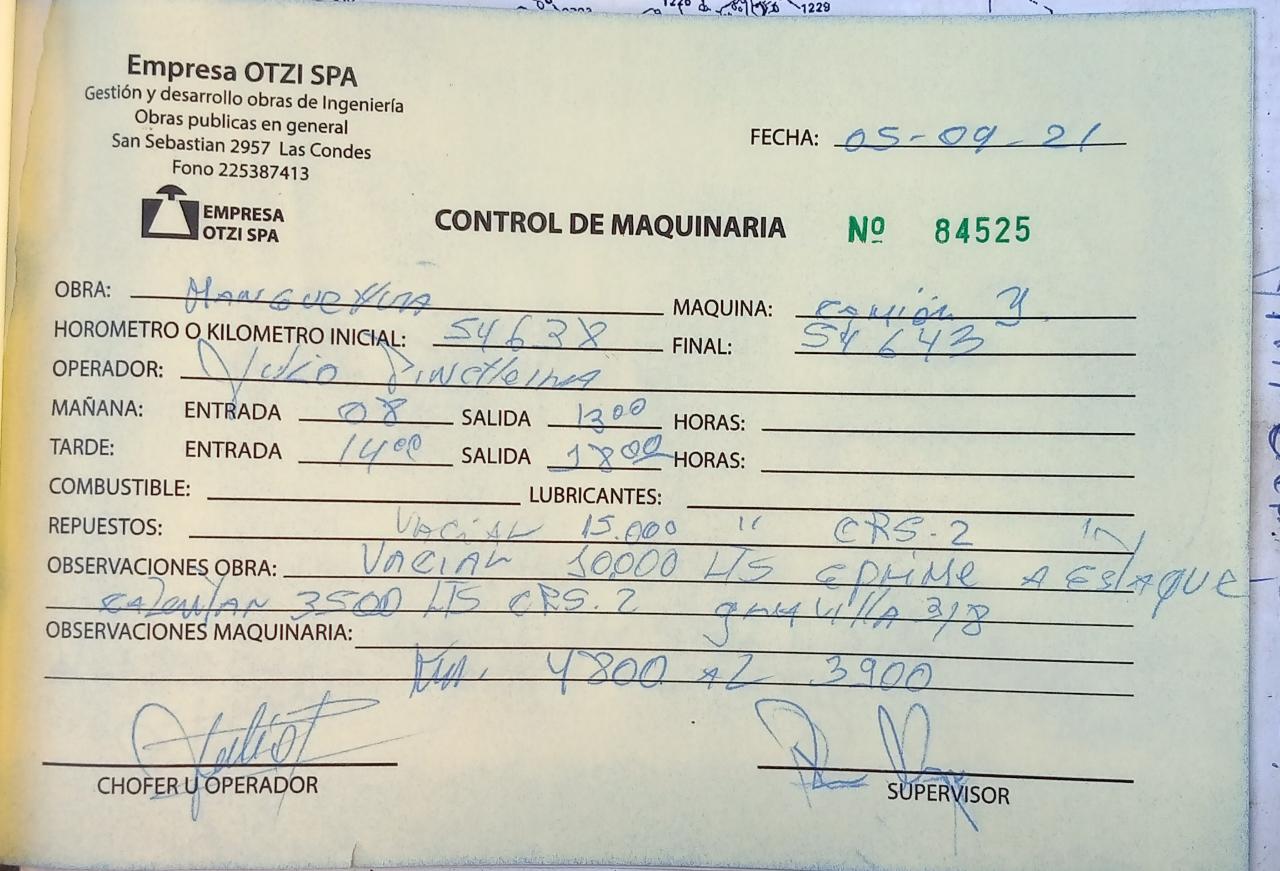 1229
Empresa OTZI SPA
Gestión y desarrollo obras de Ingeniería
Obras publicas en general
San Sebastian 2957 Las Condes
Fono 225387413
FECHA: 05-09-21
EMPRESA
OTZI SPA
CONTROL DE MAQUINARIA Nº 84525
OBRA: MAQUINA: camión
HOROMETRO O KILOMETRO INICIAL: 54638 FINAL: 54643
OPERADOR: Julio
MAÑANA: ENTRADA 08 SALIDA 1300 HORAS:
TARDE: ENTRADA 1400 SALIDA 1800 HORAS:
COMBUSTIBLE: LUBRICANTES:
REPUESTOS: VACIAL 15.000 " CRS-2 "
OBSERVACIONES OBRA: VACIAL 10000 LTS EPRIME A ESTAQUE
3500 LTS CRS.2 gravilla 3/8
OBSERVACIONES MAQUINARIA:
Km. 4800 AL 3900
CHOFER U OPERADOR SUPERVISOR